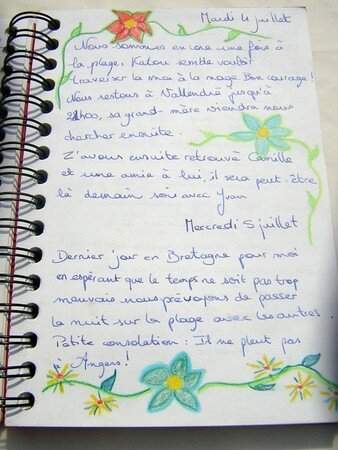 Mardi 4 juillet
Nous sommes encore une fois à
la plage. Katou semble vouloir
traverser la mer à la nage. Bon courage !
Nous restons à Vallendré jusqu'à
21h00, sa grand-mère viendra nous
chercher ensuite.
Z'avons ensuite retrouvé Camille
et une amie à lui, il sera peut-être
là demain soir avec Yvan
Mercredi 5 juillet
Dernier jour en Bretagne pour moi
en espérant que le temps ne soit pas trop
mauvais nous prévoyons de passer
la nuit sur la plage avec les autres.
Petite consolation : Il ne pleut pas
à Angers !